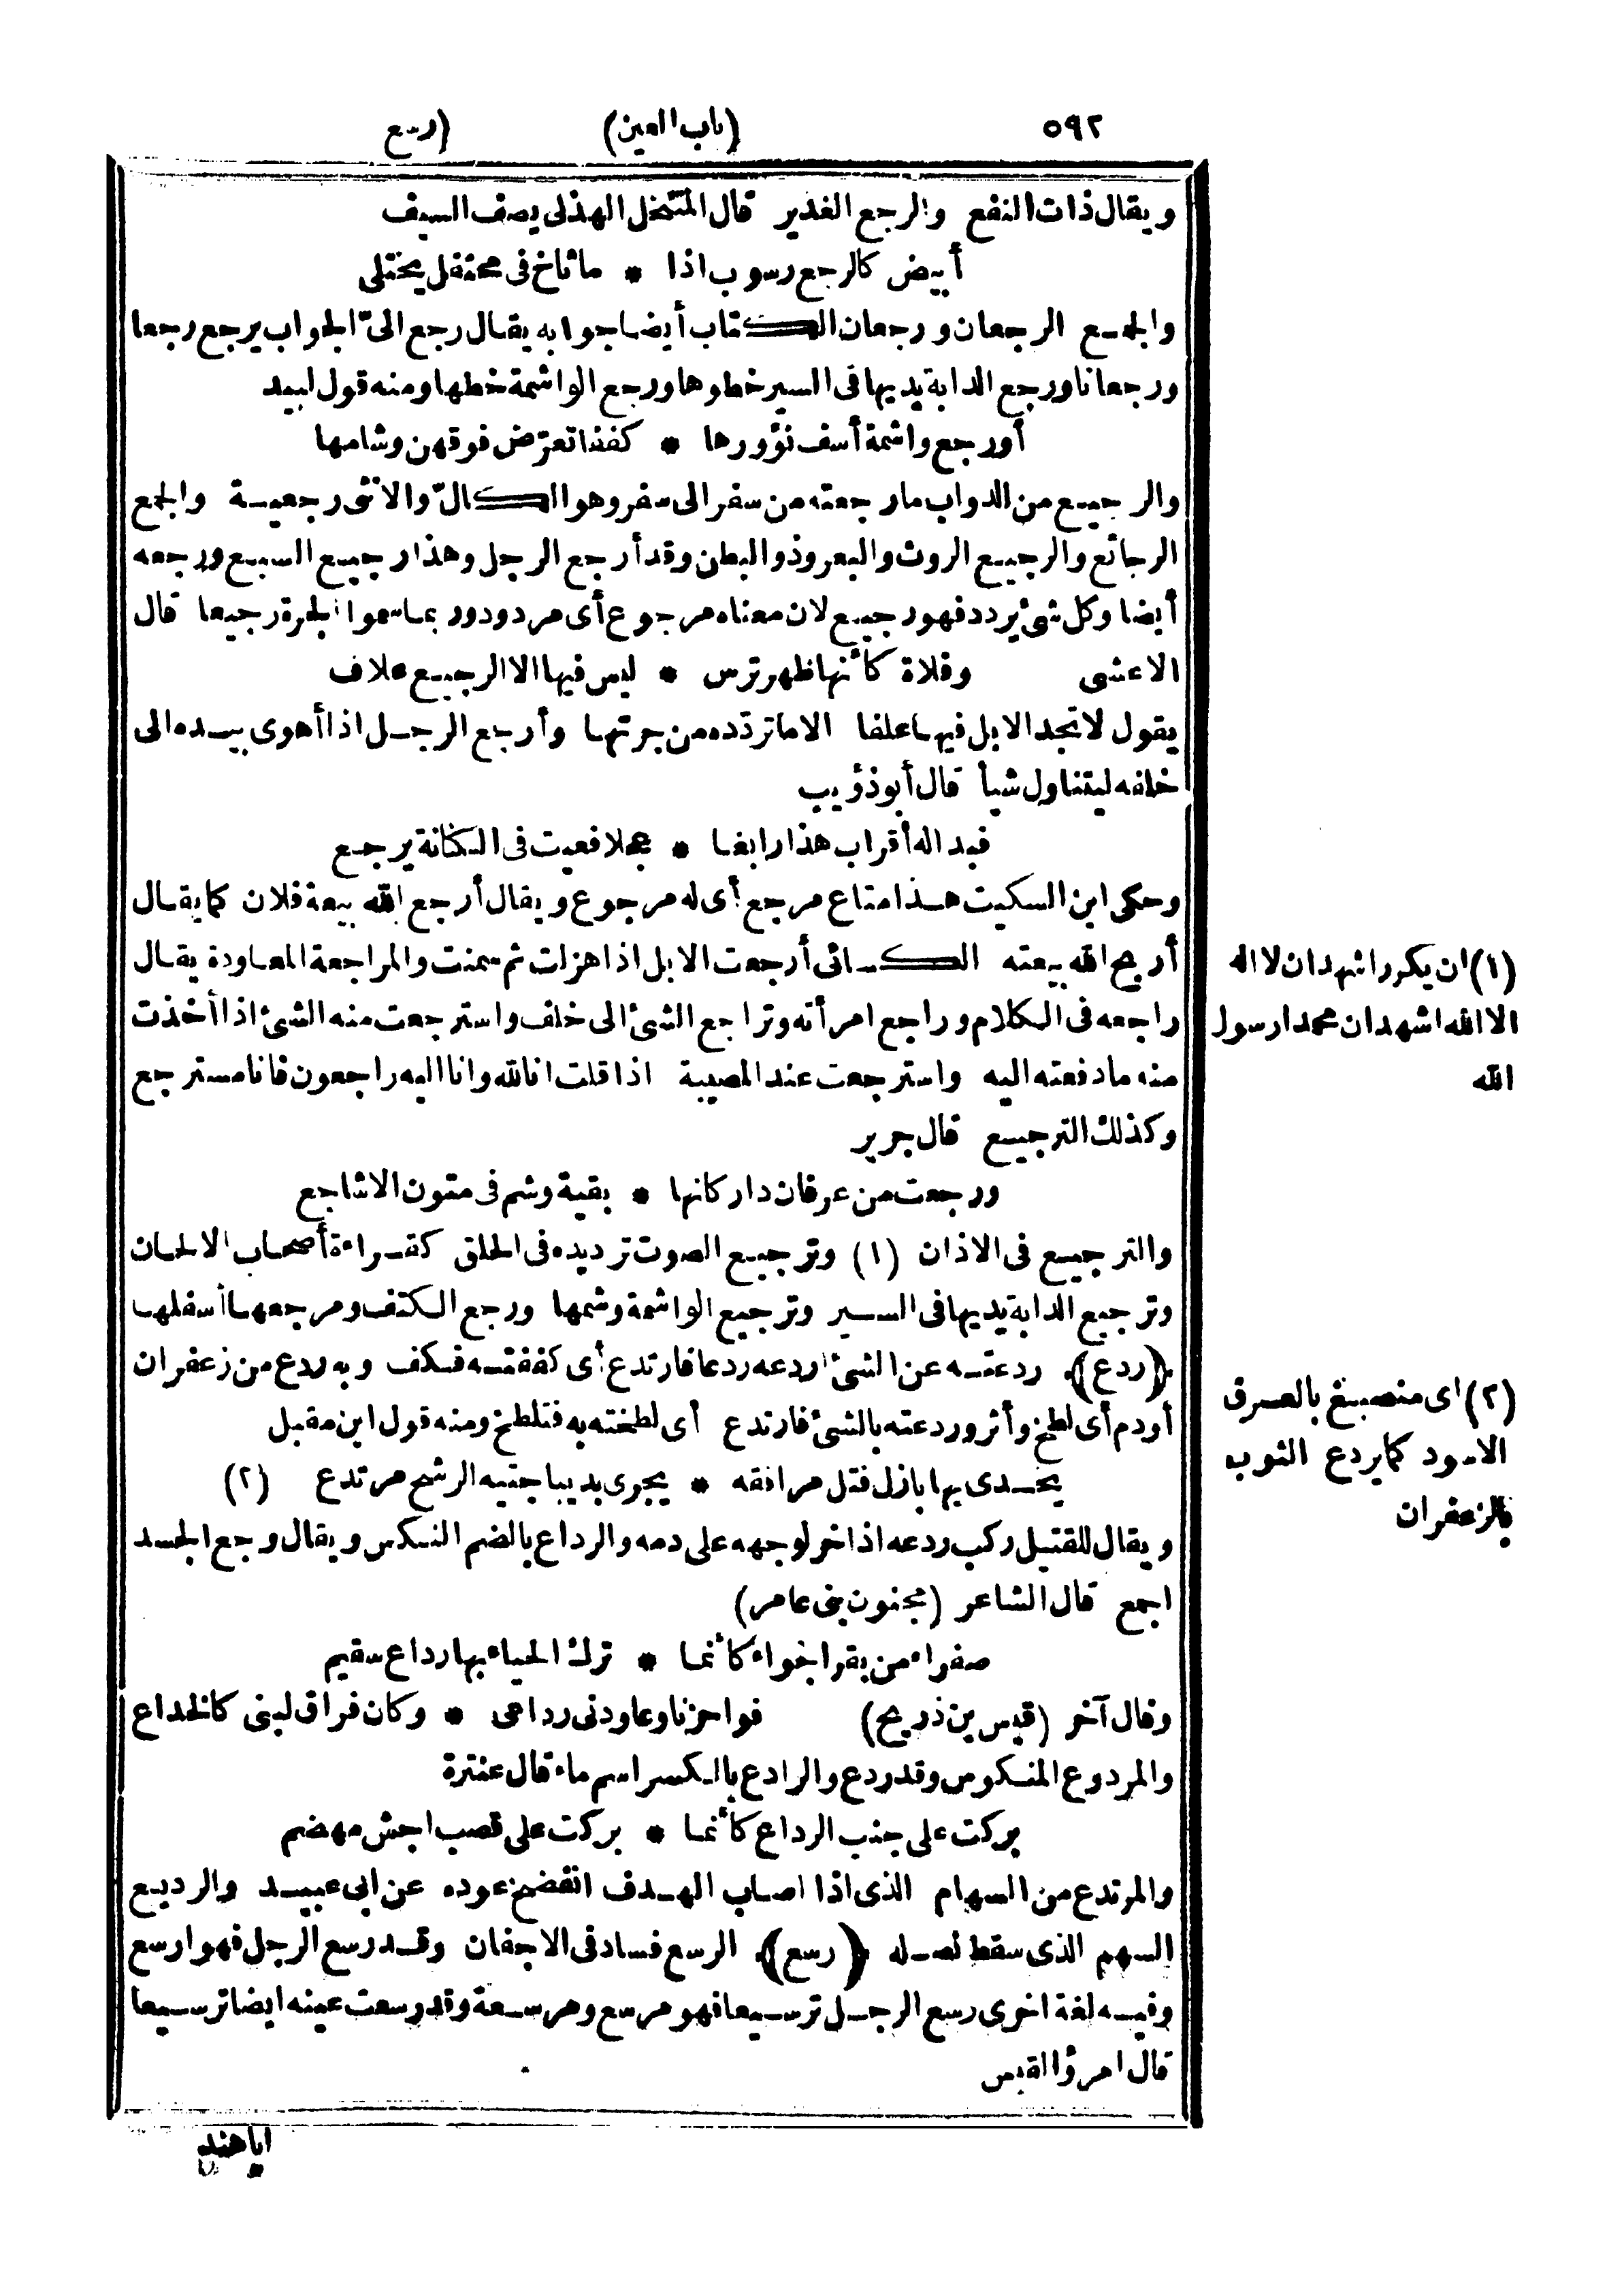 ٥٩٢ (باب العين) (رسع
ويقال ذات النفع والرجع الغدير قال المتنخل الهذلى يصف السيف
أبيض كالرجع رسوب اذا * ماثاخ فى محتفل يختلى
والجمع الرجعان ورجعان الكتاب أيضا جوابه يقال رجع الىّ الجواب يرجع رجعا
ورجعانا ورجع الدابة يديها فى السير خطوها ورجع الواشمة خطها ومنه قول لبيد
أو رجع واشمة أسف نؤورها * كففا تعرّض فوقهن وشامها
والرجيع من الدواب مارجعته من سفر الى سفر وهو الكالّ والانثى رجعيـة والجمع
الرجائع والرجيع الروث والبعر وذو البطن وقد أرجع الرجل وهذا رجيع السبع ورجعه
أيضا وكل شئ يردد فهو رجيع لان معناه مرجوع أى مردود وربما سموا الجرة رجيعا قال
الاعشى وفلاة كأنها ظهر ترس * ليس فيها الا الرجيع علاف
يقول لا تجد الابل فيها علفا الا ماتردّده من جرتها وأرجع الرجل اذا أهوى بيده الى
خلفه ليتناول شيأ قال أبو ذؤيب
فبدا له أقراب هذا رابغا * عجلا فعيث فى الكنانة يرجع
وحكى ابن السكيت هذا متاع مرجع أى له مرجوع ويقال أرجع الله بيعة فلان كما يقال
أربح الله بيعته الكسائى أرجعت الابل اذا هزلت ثم سمنت والمراجعة المعاودة يقال
راجعه فى الكلام وراجع امرأته وتراجع الشئ الى خلف واسترجعت منه الشئ اذا أخذت
منه مادفعته اليه واسترجعت عند المصيبة اذا قلت انا لله وانا اليه راجعون فانا مسترجع
وكذلك الترجيع قال جرير
ورجعت من عرفان دار كانها * بقية وشم فى متون الاشاجع
والترجيع فى الاذان (١) وترجيع الصوت ترديده فى الحلق كقراءة أصحاب الالحان
وترجيع الدابة يديها فى السير وترجيع الواشمة وشمها ورجع الكتف ومرجعها أسفلها
﴿ردع﴾ ردعته عن الشئ اردعه ردعا فارتدع أى كففته فكف وبه ردع من زعفران
أودم أى لطخ وأثر وردعته بالشئ فارتدع أى لطخته به فتلطخ ومنه قول ابن مقبل
يخدى بها بازل فتل مرافقه * يجرى بديباجتيه الرشح مرتدع (٢)
ويقال للقتيل ركب ردعه اذا خر لوجهه على دمه والرداع بالضم النكس ويقال وجع الجسد
اجمع قال الشاعر (مجنون بنى عامر)
صفراء من بقر الجواء كأنما * ترك الحياء بها رداع سقيم
وقال آخر (قيس بن ذريح) فواحزنا وعاودنى رداعى * وكان فراق لبنى كالخداع
والمردوع المنكوس وقد ردع والرادع بالكسر اسم ماء قال عنترة
بركت على جنب الرداع كأنما * بركت على قصب اجش مهضم
والمرتدع من السهام الذى اذا اصاب الهدف انفضخ عوده عن ابى عبيد والرديع
السهم الذى سقط نصله ﴿رسع﴾ الرسع فساد فى الاجفان وقد رسع الرجل فهو ارسع
وفيه لغة اخرى رسع الرجل ترسيعا فهو مرسع ومرسعة وقد رسعت عينه ايضا ترسيعا
قال امرؤ القيس
اياهند
(١) ان يكرر اشهد ان لا اله
الا الله اشهد ان محمدا رسول
الله
(٢) اى منصبغ بالعرق
الاسود كما يردع الثوب
بالزعفران